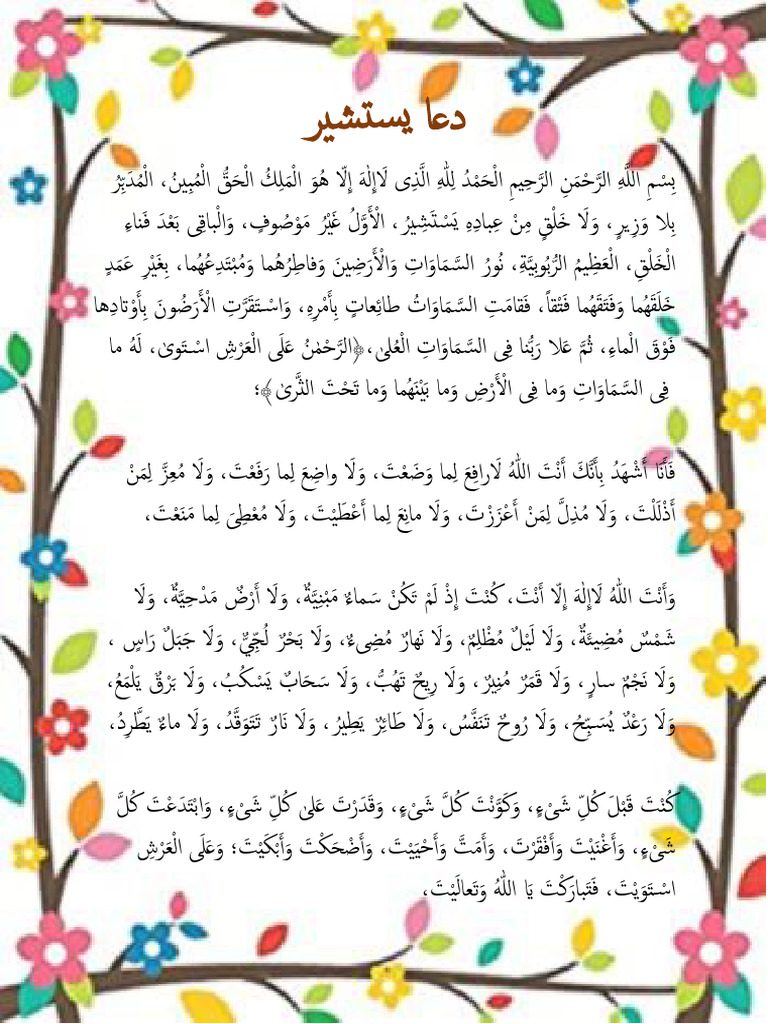 دعا یستشیر
بِسْمِ اللَّهِ الرَّحْمَنِ الرَّحِيمِ الْحَمْدُ لِلّٰهِ الَّذِى لَاإِلٰهَ إِلّا هُوَ الْمَلِكُ الْحَقُّ الْمُبِينُ، الْمُدَبِّرُ
بِلا وَزِيرٍ، وَلَا خَلْقٍ مِنْ عِبادِهِ يَسْتَشِيرُ، الْأَوَّلُ غَيْرُ مَوْصُوفٍ، وَالْباقِى بَعْدَ فَناءِ
الْخَلْقِ، الْعَظِيمُ الرُّبُوبِيَّةِ، نُورُ السَّمَاوَاتِ وَالْأَرَضِينَ وَفاطِرُهُما وَمُبْتَدِعُهُما، بِغَيْرِ عَمَدٍ
خَلَقَهُما وَفَتَقَهُما فَتْقاً، فَقامَتِ السَّمَاوَاتُ طائِعاتٍ بِأَمْرِهِ، وَاسْتَقَرَّتِ الْأَرَضُونَ بِأَوْتادِها
فَوْقَ الْماءِ، ثُمَّ عَلا رَبُّنا فِى السَّمَاوَاتِ الْعُلىٰ،﴿الرَّحْمٰنُ عَلَى الْعَرْشِ اسْتَوىٰ، لَهُ ما
فِى السَّمَاوَاتِ وَما فِى الْأَرْضِ وَما بَيْنَهُما وَما تَحْتَ الثَّرىٰ﴾؛
فَأَنَا أَشْهَدُ بِأَنَّكَ أَنْتَ اللّٰهُ لَارافِعَ لِما وَضَعْتَ، وَلَا واضِعَ لِما رَفَعْتَ، وَلَا مُعِزَّ لِمَنْ
أَذْلَلْتَ، وَلَا مُذِلَّ لِمَنْ أَعْزَزْتَ، وَلَا مانِعَ لِما أَعْطَيْتَ، وَلَا مُعْطِىَ لِما مَنَعْتَ،
وَأَنْتَ اللّٰهُ لَاإِلٰهَ إِلّا أَنْتَ، كُنْتَ إِذْ لَمْ تَكُنْ سَماءٌ مَبْنِيَّةٌ، وَلَا أَرْضٌ مَدْحِيَّةٌ، وَلَا
شَمْسٌ مُضِيئَةٌ، وَلَا لَيْلٌ مُظْلِمٌ، وَلَا نَهارٌ مُضِىءٌ، وَلَا بَحْرٌ لُجِّيٌّ، وَلَا جَبَلٌ رَاسٍ ،
وَلَا نَجْمٌ سارٍ، وَلَا قَمَرٌ مُنِيرٌ، وَلَا رِيحٌ تَهُبُّ، وَلَا سَحَابٌ يَسْكُبُ، وَلَا بَرْقٌ يَلْمَعُ،
وَلَا رَعْدٌ يُسَبِّحُ، وَلَا رُوحٌ تَنَفَّسُ، وَلَا طَائِرٌ يَطِيرُ، وَلَا نَارٌ تَتَوَقَّدُ، وَلَا ماءٌ يَطَّرِدُ،
كُنْتَ قَبْلَ كُلِّ شَىْءٍ، وَكَوَّنْتَ كُلَّ شَىْءٍ، وَقَدَرْتَ عَلىٰ كُلِّ شَىْءٍ، وَابْتَدَعْتَ كُلَّ
شَىْءٍ، وَأَغْنَيْتَ وَأَفْقَرْتَ، وَأَمَتَّ وَأَحْيَيْتَ، وَأَضْحَكْتَ وَأَبْكَيْتَ؛ وَعَلَى الْعَرْشِ
اسْتَوَيْتَ، فَتَبارَكْتَ يَا اللّٰهُ وَتَعالَيْتَ،